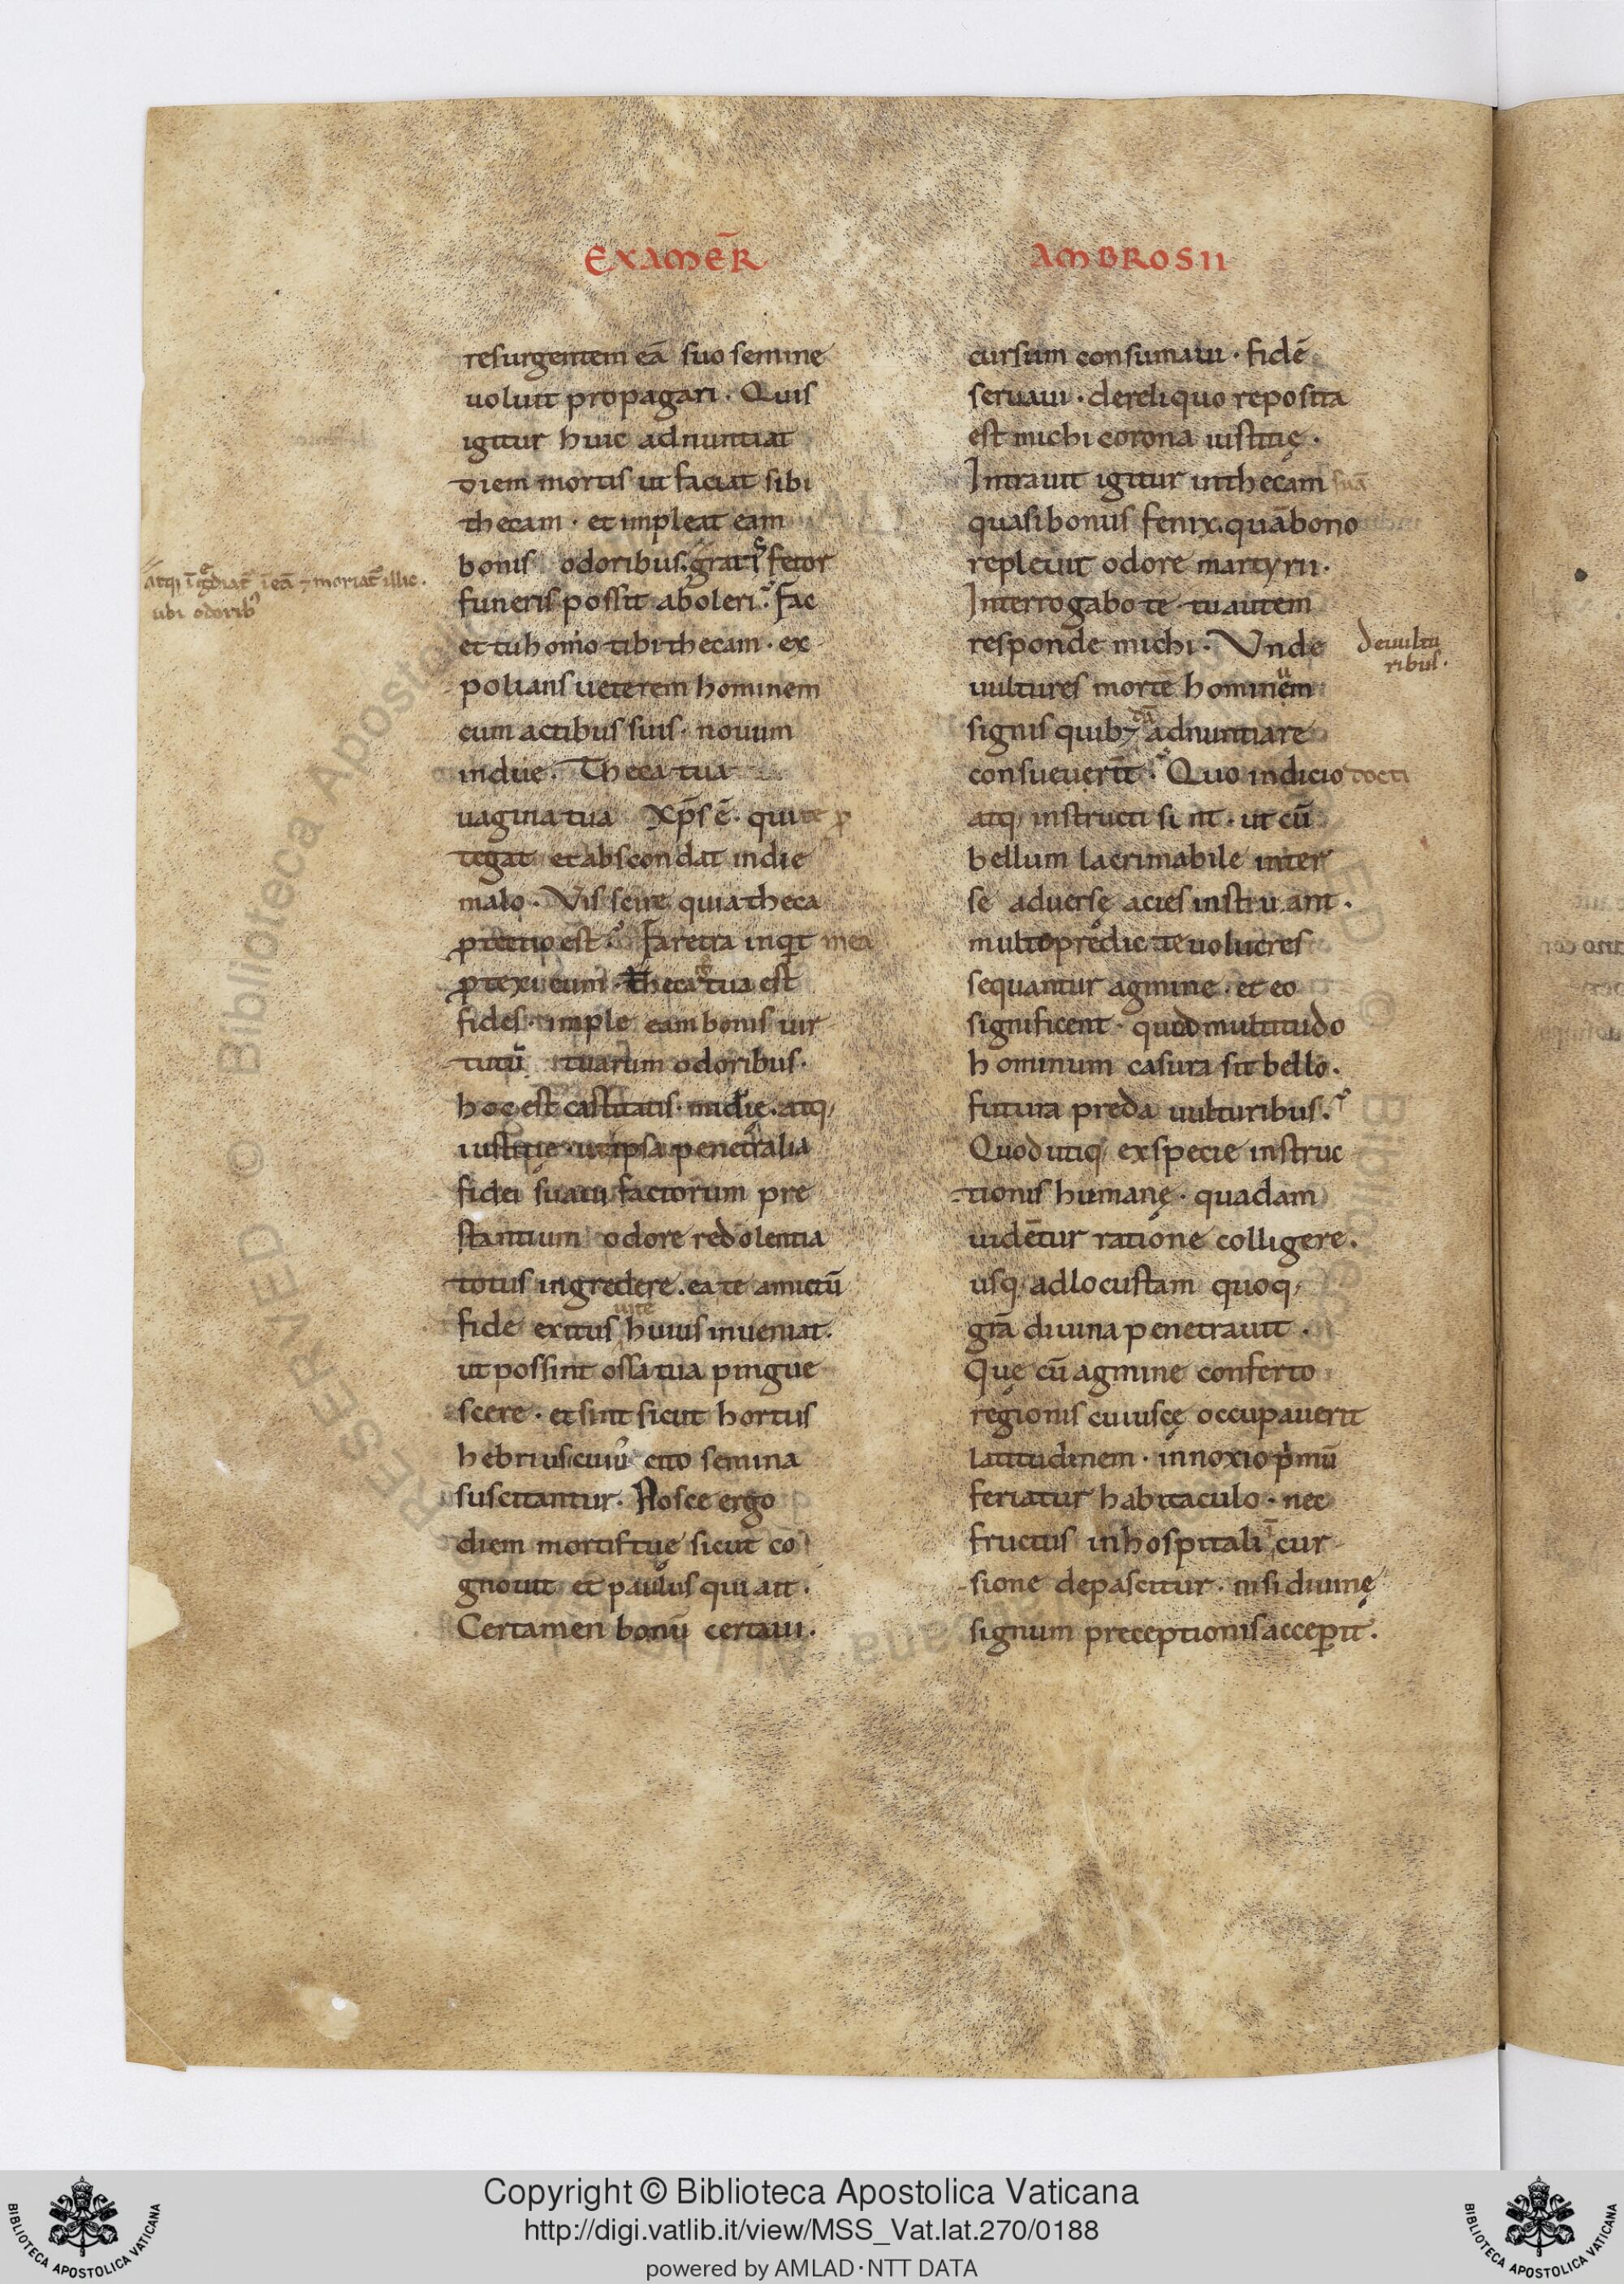 EXAMER̄
resurgentem eā suo semine
uoluit propagari. Quis
igitur huic adnuntiat
diem mortis ut faciat sibi
thecam. et impleat eam
bonis odoribus.
atq, īgrediat ī eā & moriat illic.
ubi odorib'
funeris possit aboleri. Fac
et tu homo tibi thecam. ex
polians ueterem hominem
cum actibus suis. nouum
indue. Theca tua
uagina tua xp̄s ē. qui te ꝓ
tegat et abscondat in die
malo. Vis scire quia theca
ꝓtectio est. Faretra inqt mea
ꝓtexi eum. Theca tua est
fides. imple eam bonis uir
tutū tuarum odoribus.
hoc est castitatis. atq,
iustitie. ut ipsa penetralia
fidei suauī factorum pre
stantium odore redolentia
totus ingredere. ea te amictū
fide exitus uite huius inueniat.
ut possint ossa tua pingue
scere. et sint sicut hortus
hebrius cuiu' cito semina
suscitantur. Nosce ergo
diem mortis tue sicut co
gnouit et paulus qui ait.
Certamen bonū certaui.
AMBROSII
cursum consumaui. fidē
seruaui. de reliquo reposita
est michi corona iustitię.
Intrauit igitur in thecam suā
quasi bonus fenix. quā bono
repleuit odore martyrii.
Interrogabo te tu autem
responde michi. Vnde
De uultu
ribus.
uultures mortē hominum
signis quib; adnuntiare
consueuerīt. Quo indicio docti
atq, instructi sint. ut cū
bellum lacrimabile inter
se aduersę acies instruant.
multo predic te uolucres
sequantur agmine. et eo
significent. quod multitudo
hominum casura sit bello.
futura preda uulturibus.
Quod utiq, ex specie instruc
tionis humanę. quadam
uidētur ratione colligere.
usq, ad locustam quoq,
gr̄a diuina penetrauit.
Quę cū agmine conferto
regionis cuiuscę occupauerit
latitudinem. innoxio pimū
feriatur habitaculo. nec
fructus inhospitali īcur
sione depascitur. nisi diuinę
signum preceptionis acceꝑit.
Copyright © Biblioteca Apostolica Vaticana
http://digi.vatlib.it/view/MSS_Vat.lat.270/0188
powered by AMLAD·NTT DATA
BIBLIOTECA APOSTOLICA VATICANA
BIBLIOTECA APOSTOLICA VATICANA